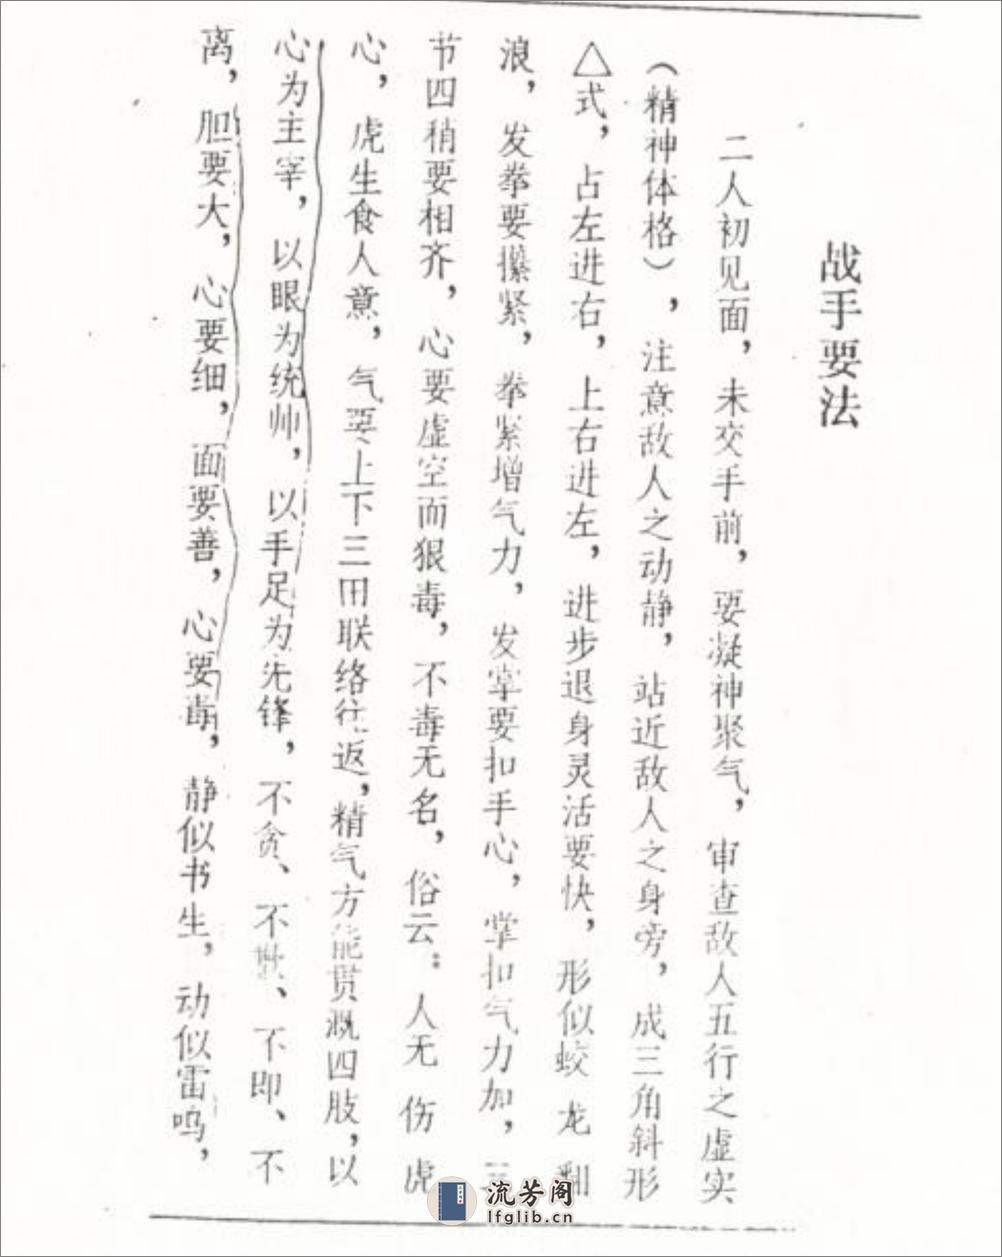 战手要法
二人初见面，未交手前，要凝神聚气，审查敌人五行之虚实
（精神体格），注意敌人之动静，站近敌人之身旁，成三角斜形
△式，占左进右，上右进左，进步退身灵活要快，形似蛟龙翻
浪，发拳要攥紧，拳紧增气力，发掌要扣手心，掌扣气力加，三
节四稍要相齐，心要虚空而狠毒，不毒无名，俗云：人无伤虎
心，虎生食人意，气要上下三田联络往返，精气方能贯溉四肢，以
心为主宰，以眼为统帅，以手足为先锋，不贪、不欺、不即、不
离，胆要大，心要细，面要善，心要毒，静似书生，动似雷鸣，
流芳阁
lfglib.cn